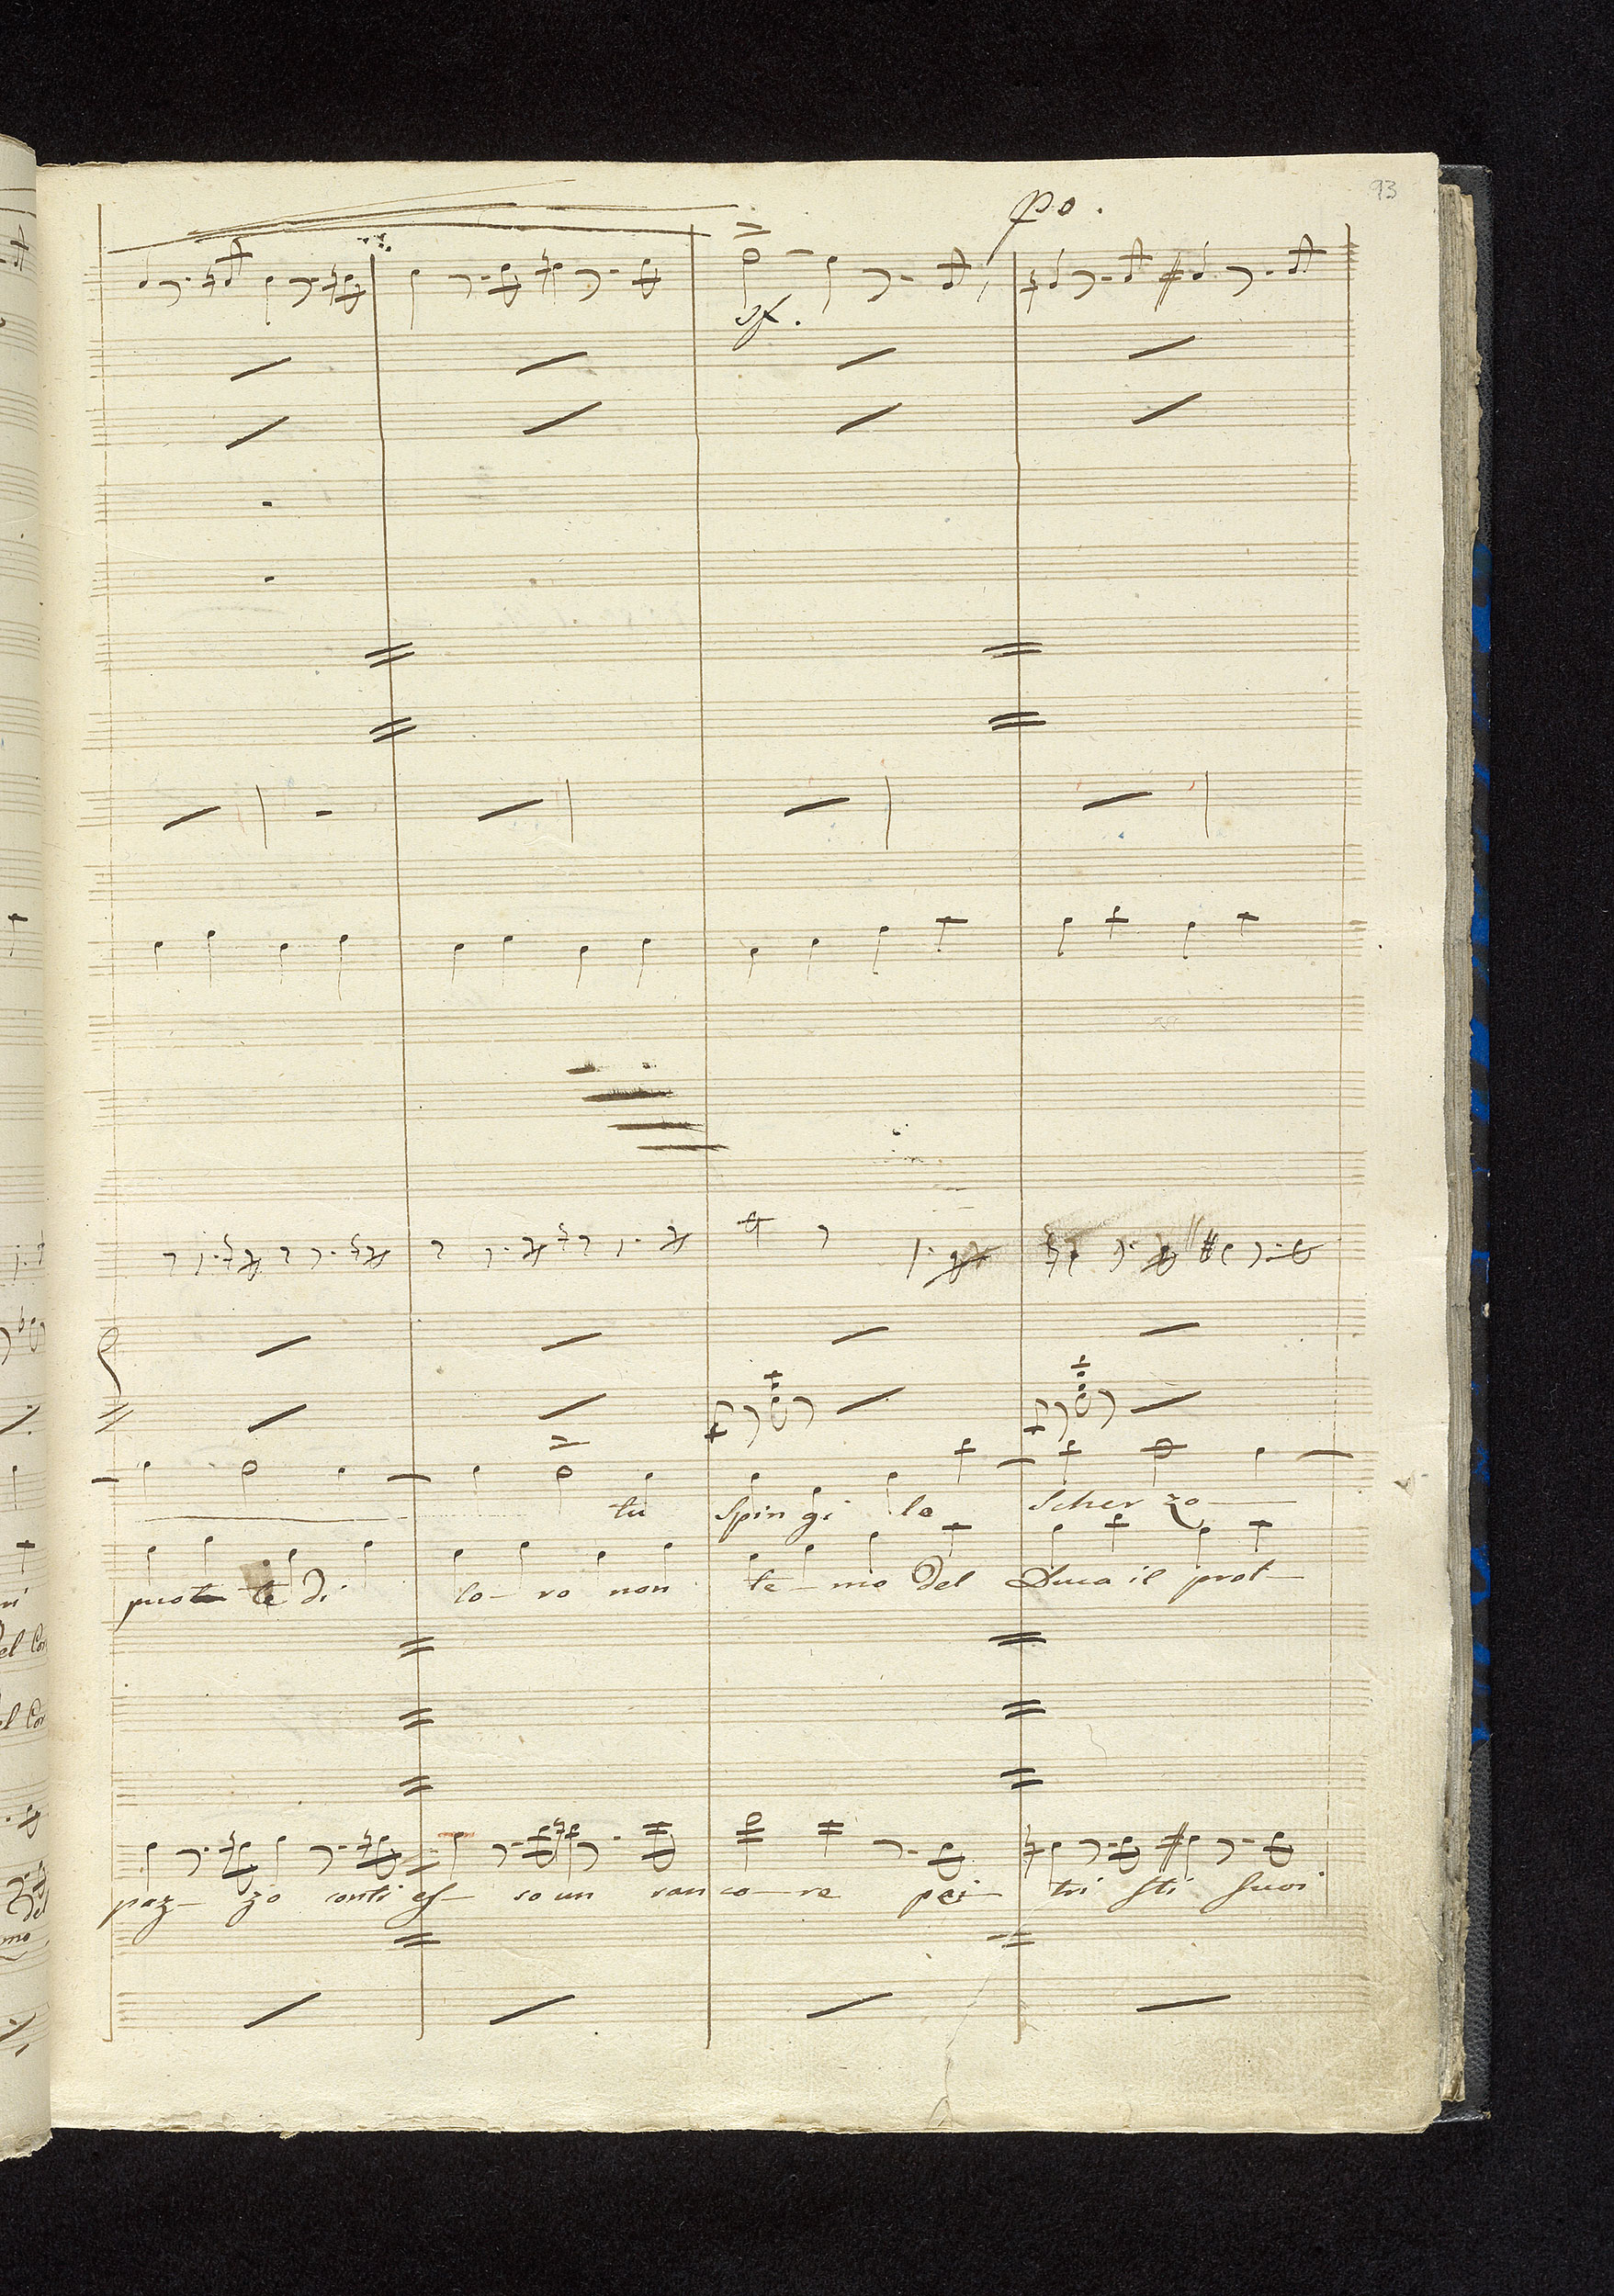 93
po.
sf.
tu spin gi lo scher zo
puote te di lo - ro non te - mo del Duca il prot -
paz - zo conti es - so un ran co - re pei - tri sti suoi